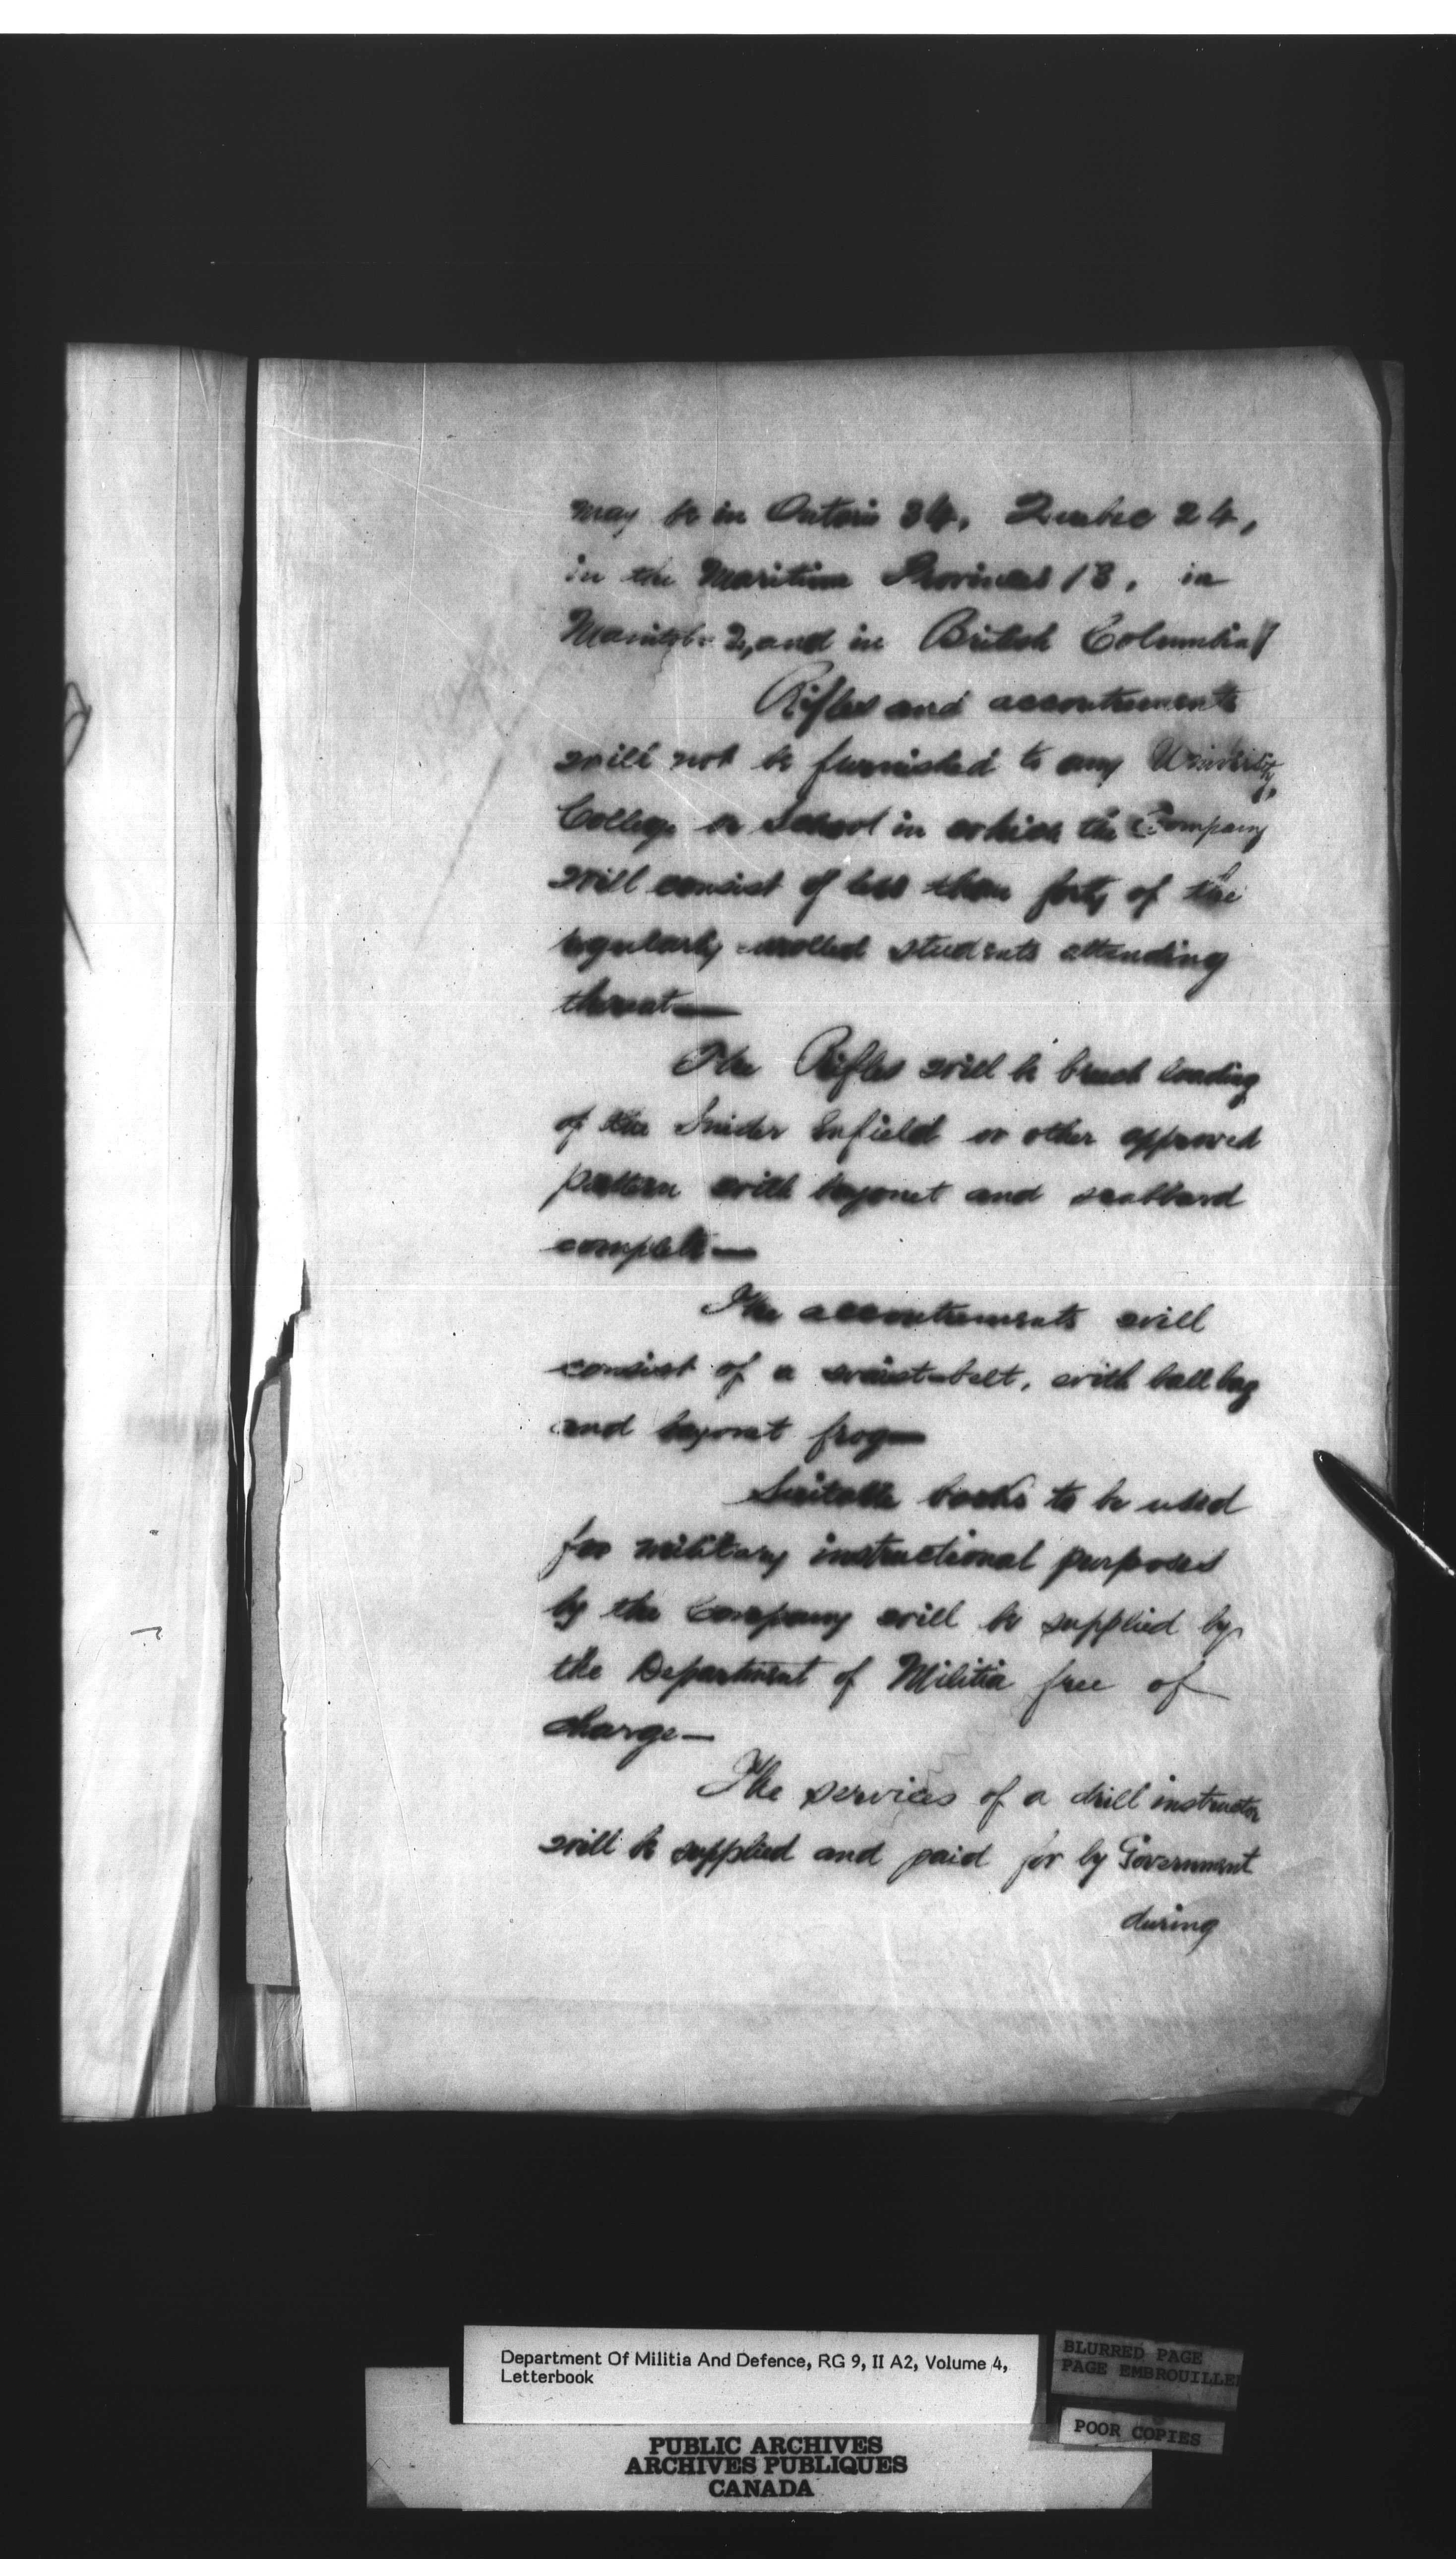 may be in Ontario 34, Quebec 24,
in the Maritime Provinces 13, in
Manitoba 2, and in British Columbia 1
Rifles and accoutrements
will not be furnished to any University,
College or School in which the Company
will consist of less than forty of the
regularly enrolled students attending
thereat—
The Rifles will be breech loading
of the Snider Enfield or other approved
pattern with bayonet and scabbard
complete—
The accoutrements will
consist of a waist-belt, with ball bag
and bayonet frog—
Suitable books to be used
for military instructional purposes
by the Company will be supplied by
the Department of Militia free of
charge—
The services of a drill instructor
will be supplied and paid for by Government
during
Department Of Militia And Defence, RG 9, II A2, Volume 4,
Letterbook
BLURRED PAGE
PAGE EMBROUILLEE
POOR COPIES
PUBLIC ARCHIVES
ARCHIVES PUBLIQUES
CANADA